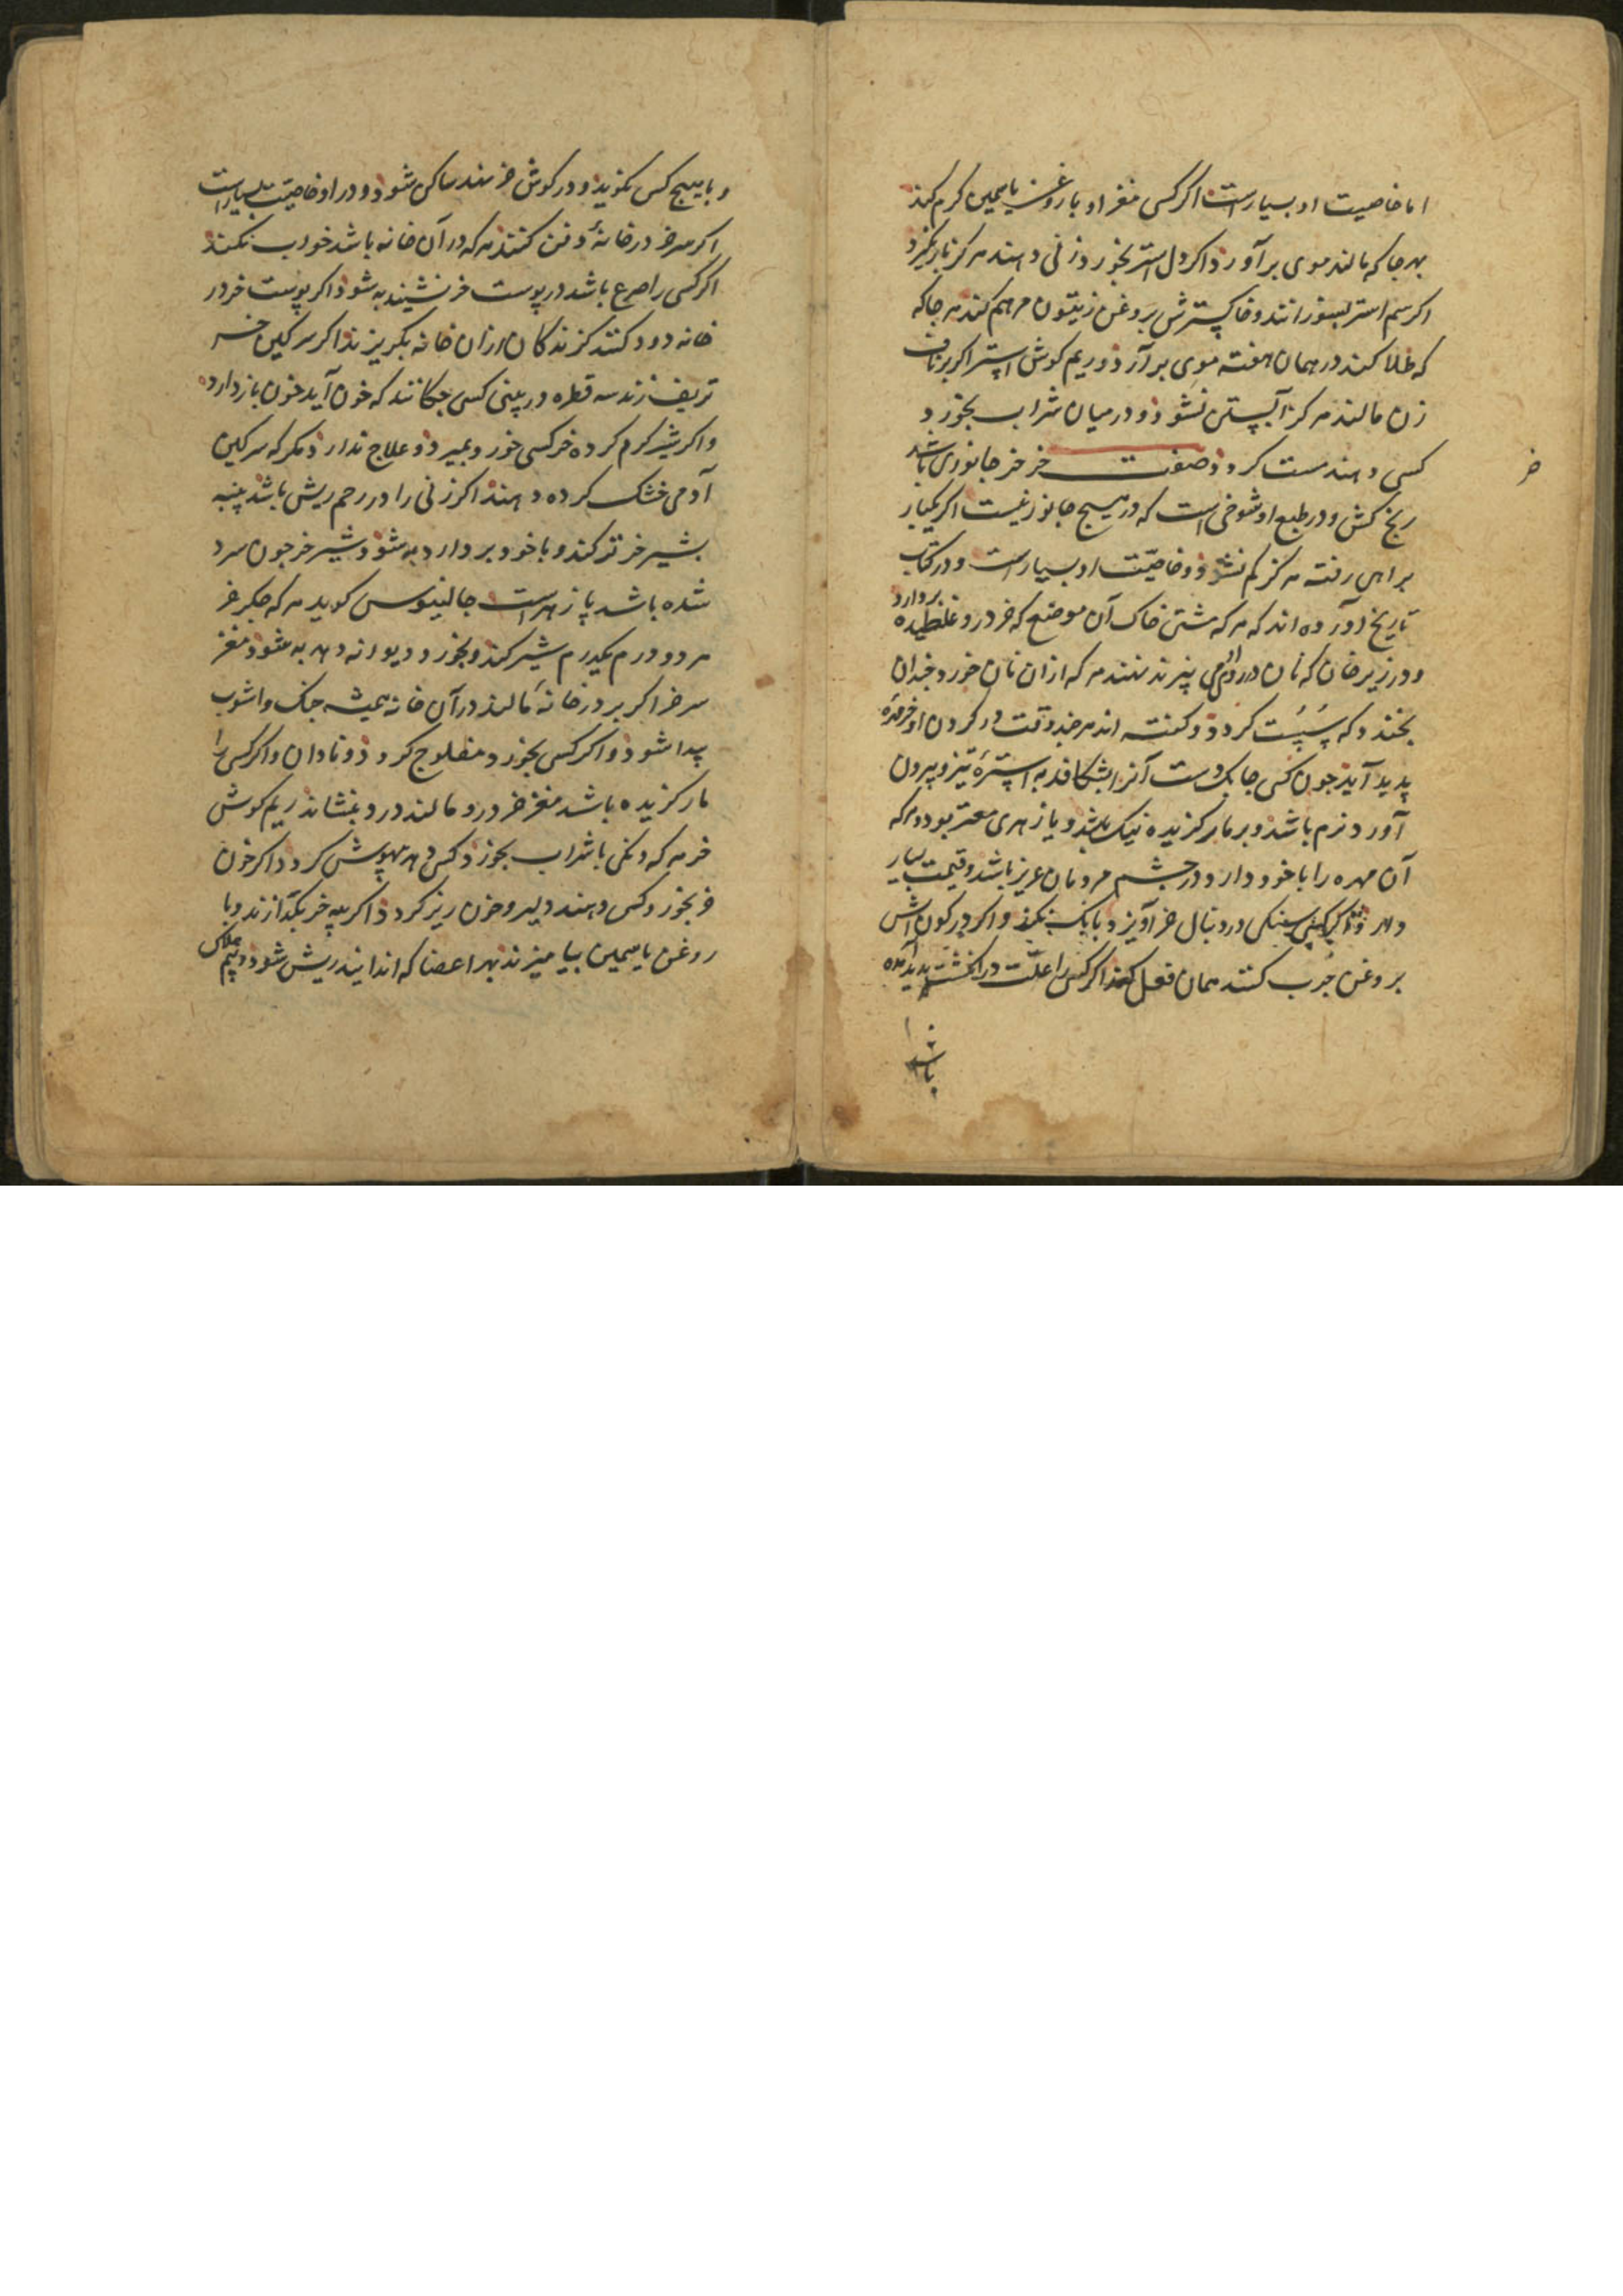 اما خاصیت او بسیارست اکر کسی مغز او با روغن یاسمین کرم کند
بهر جا که مالند موی برآورد اکر دل استر بخورد زنی دهند هرکز بار نکیرد
اکر سم استر بسوزانند و خاکسترش بروغن زیتون مرهم کنند هر جا که
که طلا کنند در همان هفته موی برآرد و ریم کوش استر اکر بر ناف
زن مالند هرکز آبستن نشود و در میان شراب بخورد
کسی دهند مست کردد صفت خر خر جانوری باشد
خر
رنج کش و در طبع او شوخی است که در هیچ جانور نیست اکر یکبار
براهی رفته هرکز کم نشود و خاصیت او بسیارست و در کتاب
تاریخ آورده اند که هر که مشتی خاک آن موضع که خر درو غلطیده بردارد
و در زیر خان که نان درو می پزند نهند هر که ازان نان خورد چندان
بخندد که سست کردد و کفته اند هر چند وقت در کردن او خر مهره
پدید آید جون کسی جابک دست آنرا بشکافد به استره تیز و بیرون
آورد نرم باشد و بر مار کزیده نیک باشد و پازهری معتبر بود و هر که
آن مهره را با خود دارد در جشم مردمان عزیز باشد و قیمت بسیار
دهد و اکر کسی سنکی در دنبال خر آویزد بانک نکند و اکر در کون اش
بروغن چرب کنند همان فعل کند اکر کسی را علت در انکشت پدید آمده
باشد
و با هیچ کس نکوید و در کوش خر نهد ساکن شود و در او خاصیت بسیارست
اکر سر خر در خانهٔ دفن کنند هر که در آن خانه باشد خواب نکند
اکر کسی را صرع باشد در پوست خر نشیند به شود اکر پوست خر در
خانه دود کنند کزندکان ازان خانه بکریزند اکر سرکین خر
تر بفشارند سه قطره در بینی کسی چکانند که خون آید خون باز دارد
و اکر شیر کرم کرده خر کسی خورد بمیرد و علاج ندارد مکر که سرکین
آدمی خشک کرده دهند اکر زنی را در رحم ریش باشد پنبه
بشیر خر تر کند و با خود بردارد به شود و شیر خر جون سرد
شده باشد پازهرست جالینوس کوید هر که جکر خر
هر دو درم یکدرم شیر کند و بخورد دیوانه دهد به شود مغز
سر خر اکر بر در خانهٔ مالند در آن خانه همیشه جنک و اشوب
پیدا شود و اکر کسی بخورد مفلوج کردد و نادان و اکر کسی را
مار کزیده باشد مغز خر درو مالند درد بنشاند ریم کوش
خر هر که دنکی با شراب بخورد کسی دهد بیهوش کردد اکر خون
خر بخورد کسی دهند دلیر و خون ریز کردد اکر پیه خر بکدازند و با
روغن یاسمین بیامیزند بهر اعضا که اندایند ریش شود و بیم هلاک